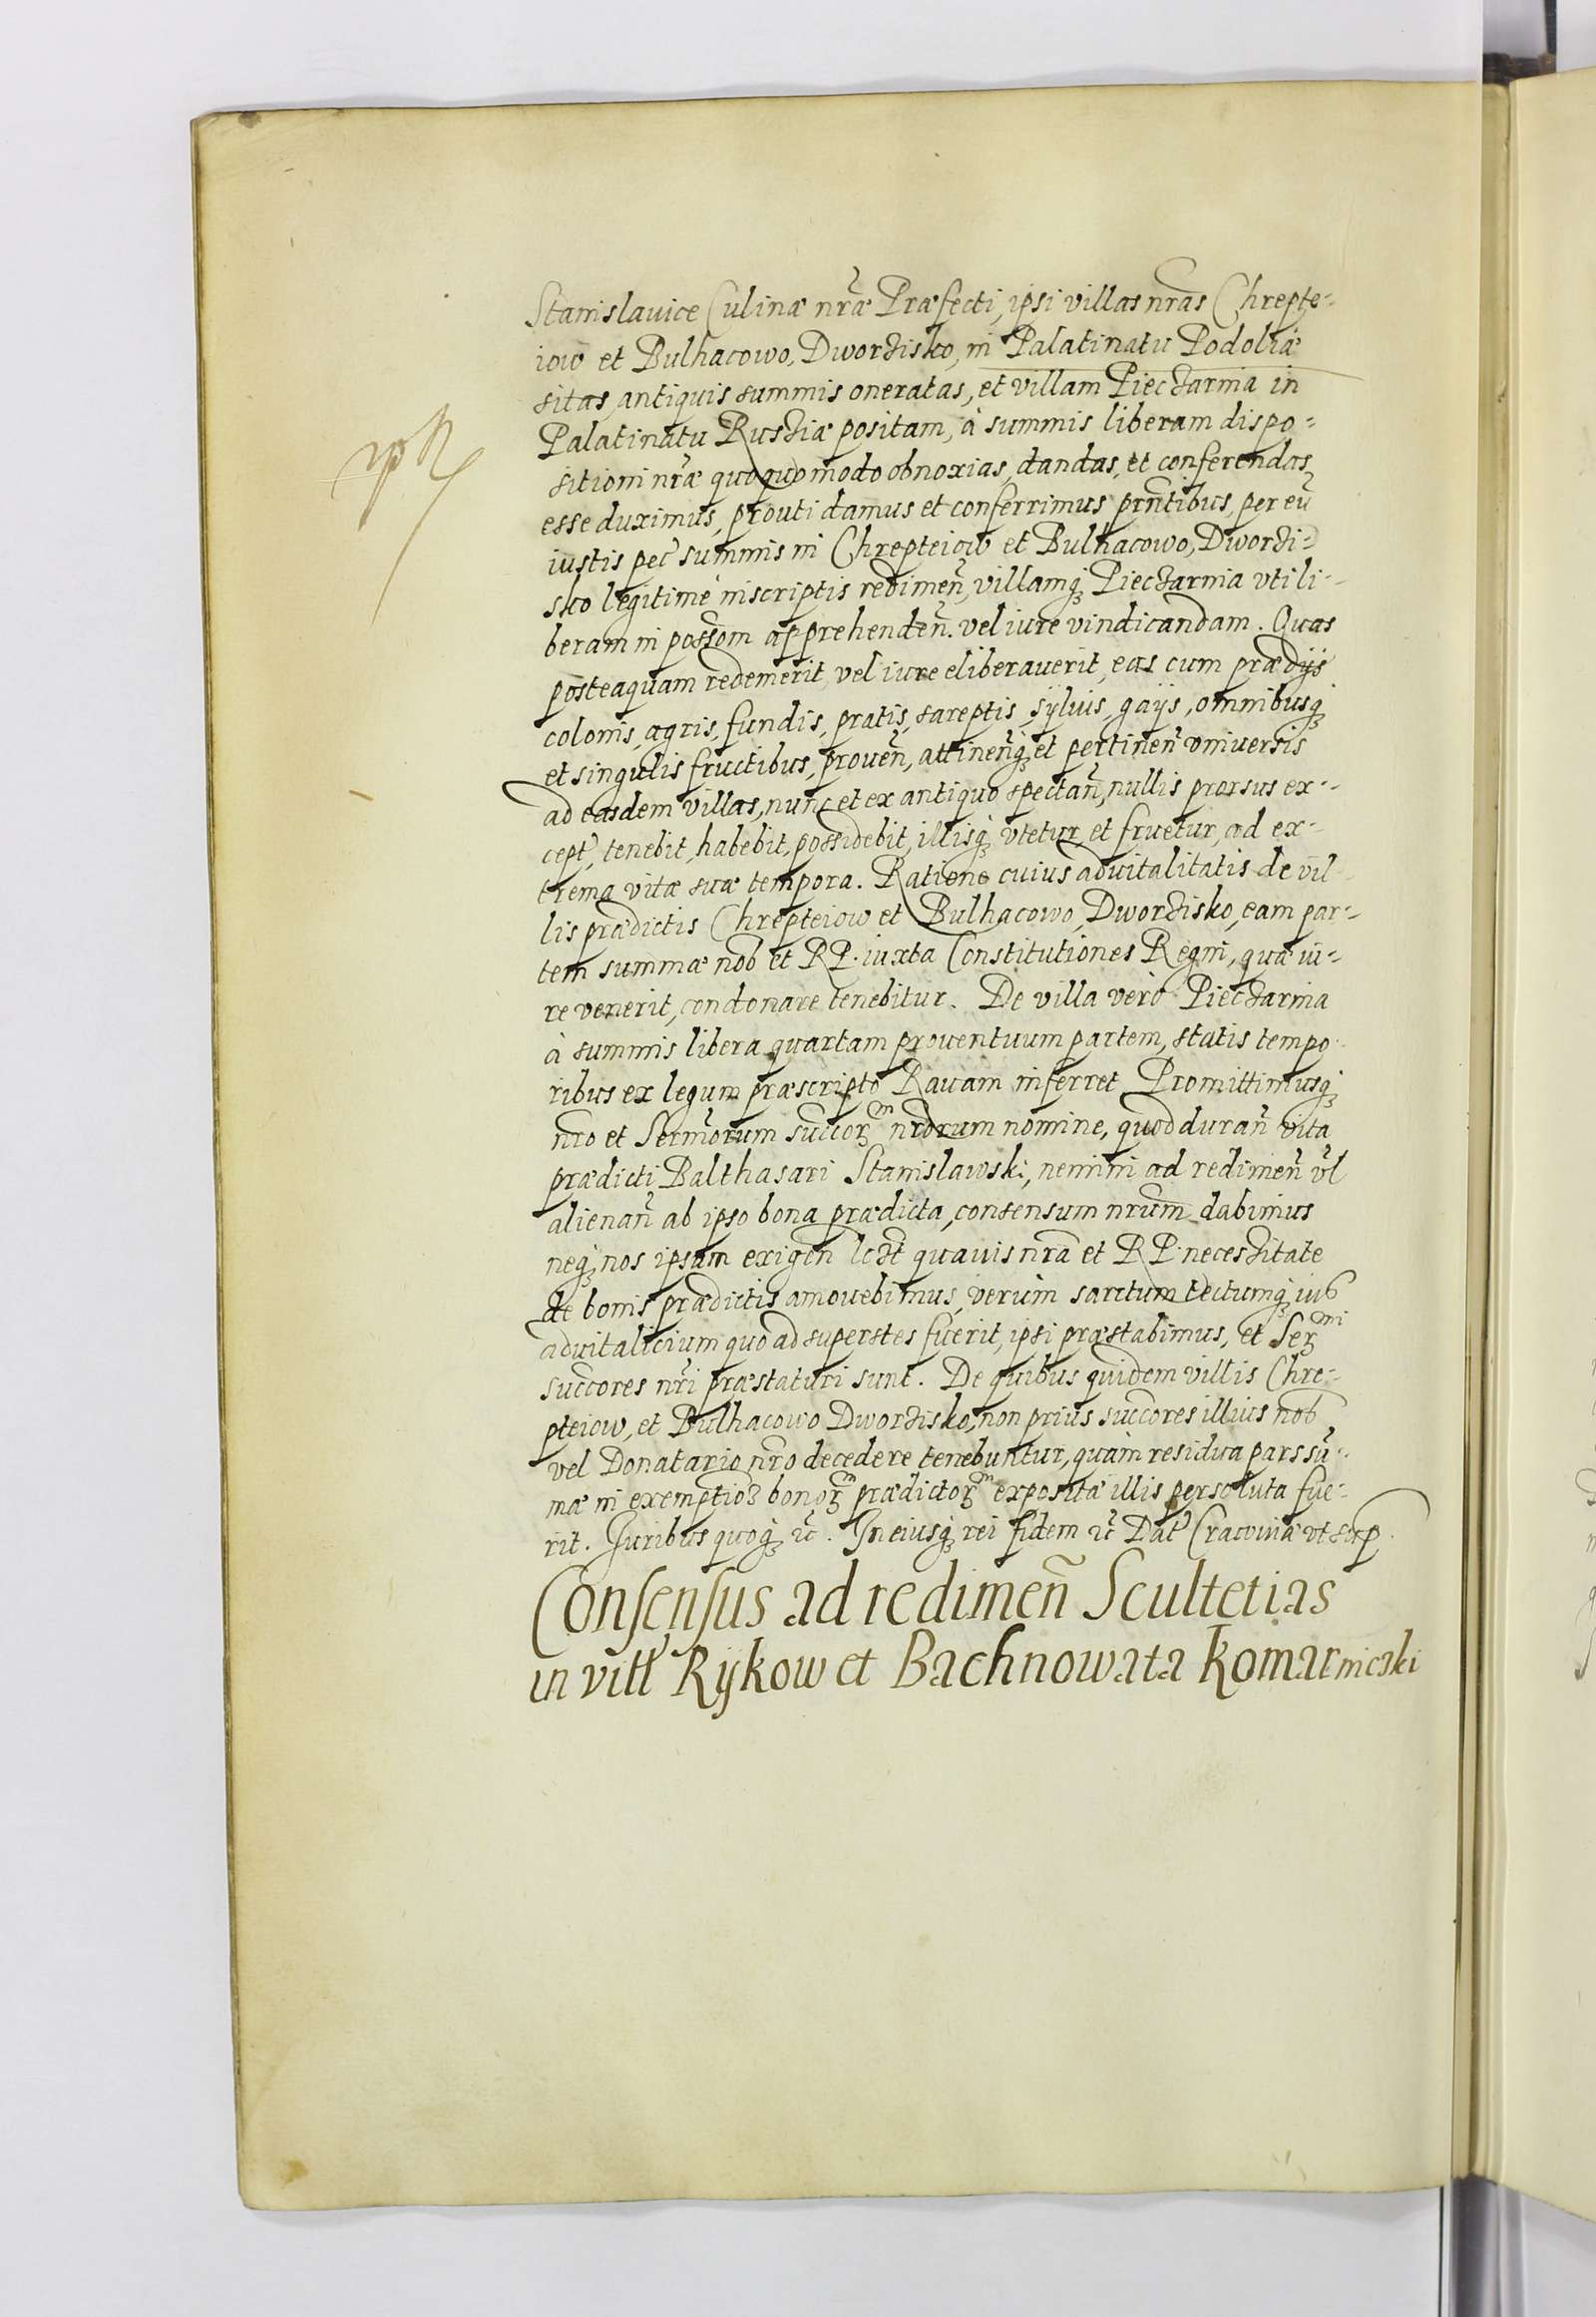 Stanislavice Culinæ nr̃æ Præfecti, ipsi villas nr̃as Chrepte-
iow et Bulhacowo, Dworzisko, in Palatinatu Podoliæ
sitas antiquis summis oneratas, et villam Pieczarnia in
Palatinatu Russiæ positam, à summis liberam dispo-
sitioni nr̃æ quoquomodo obnoxias, dandas, et conferendas
esse duximus, prouti damus et conferrimus prñtibus, per eũ
iustis pec̃ summis in Chrepteiow et Bulhacowo, Dworzi-
sko legitimè inscriptis redimeñ, villamq̃ Pieczarnia vti li-
beram in possom̃ apprehendeñ. vel iure vindicandam. Quas
posteaquam redemerit vel iure eliberauerit, eas cum prædijs
colonis, agris, fundis, pratis, sareptis, sÿluis, gaÿs, omnibusq̃
et singulis fructibus, proueñ, attineñq̃ et pertineñ vniversis
ad easdem villas, nunc et ex antiquo spectañ, nullis prorsus ex-
cept̃, tenebit, habebit, possidebit, illisq̃ vtetur et fruetur, ad ex-
trema vitæ suæ tempora. Ratione cuius aduitalitatis de vil-
lis prædictis Chrepteiow et Bulhacowo, Dworzisko, eam par-
tem summæ nob̃ et RP. iuxta Constitutiones Regni, quæ iu-
re venerit, condonare tenebitur. De villa verò Pieczarnia
à summis libera quartam prouentuum partem, statis tempo-
ribus ex legum præscripto Rauam inferret Promittimusq̃
nr̃o et Serm̃orum succorᵐ nr̃orum nomine, quod durañ vita
prædicti Balthasari Stanislawski, nemini ad redimeñ vl̃
alienañ ab ipso bona prædicta, consensum nr̃um dabimus
neq̃ nos ipsum exigeñ lczt quauis nr̃a et RP. necessitate
de bonis prædictis amouebimus, verùm sarctum tectumq̃ ius
aduitalicium quoad superstes fuerit, ipsi præstabimus, et Serᵐⁱ
succores nr̃i præstaturi sunt. De quibus quidem villis Chre-
pteiow, et Bulhacowo Dworzisko, non prius succores illius nob̃
vel Donatario nr̃o decedere tenebuntur, quàm residua pars sũ-
mæ in exemptioē bonorᵐ prædictorᵐ expositæ illis persoluta fue-
rit. Juribus quoq̃ ec̃. In eiusq̃ rei fidem ec̃ Dat̃ Cracouiæ vt sup.
Consensus ad redimeñ Scultetias
in vill̃ Rÿkow et Bachnowata Komarnicski